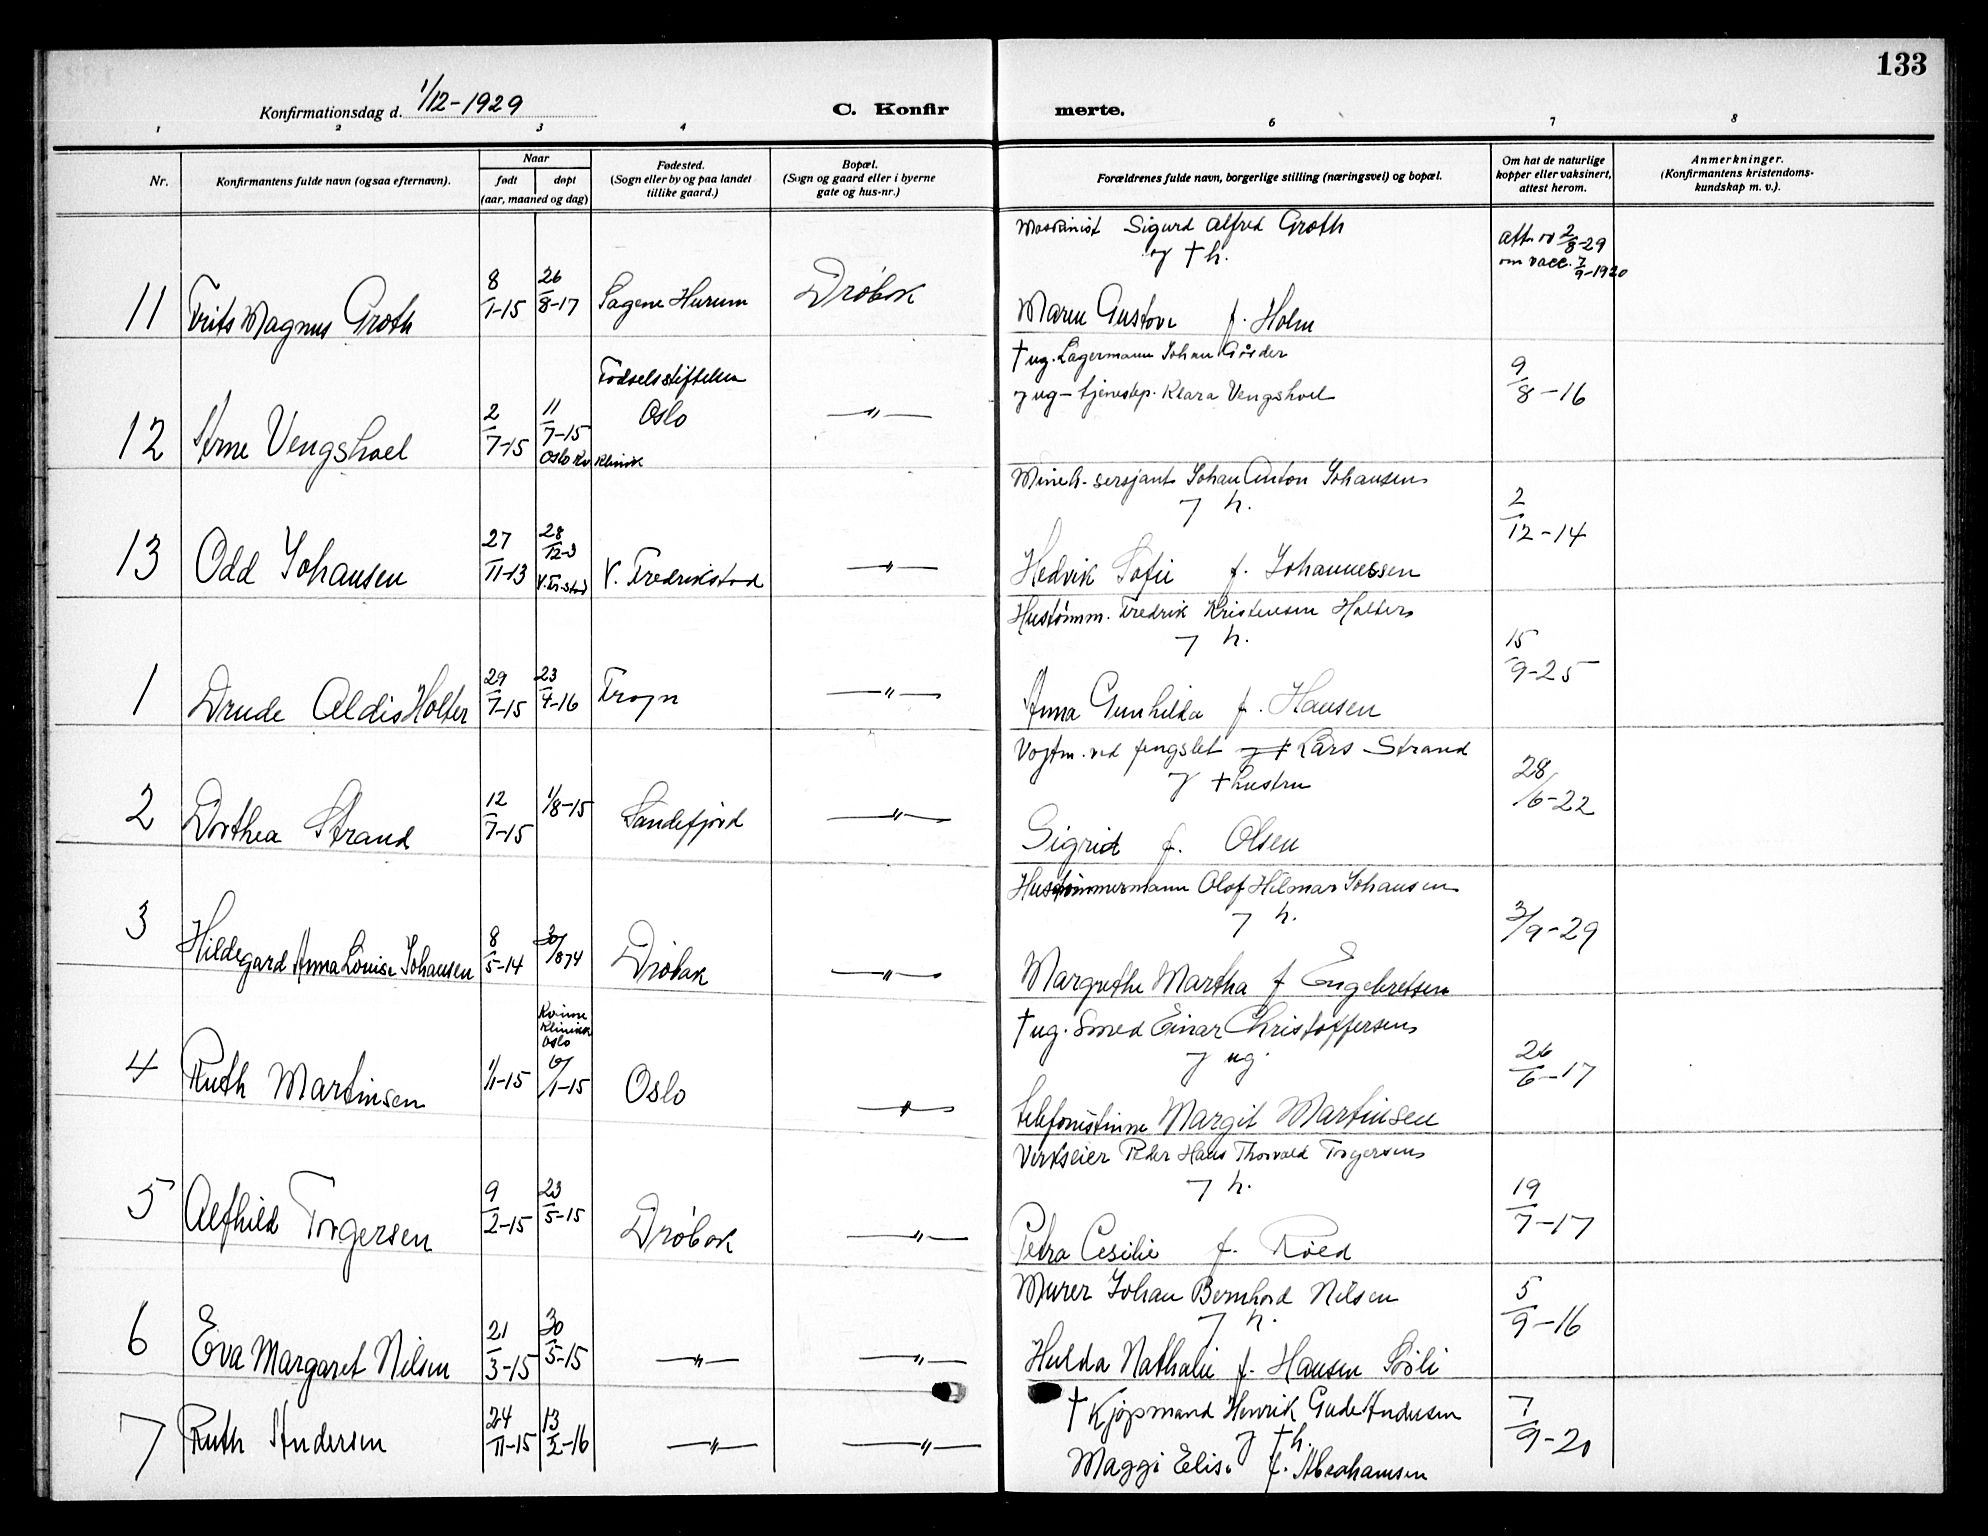 133
Konfirmationsdag d. 1/12-1929
C. Konfir merte.
1 2 3 4 5 6 7 8
Nr.
Konfirmantens fulde navn (ogsaa efternavn).
Naar
født døpt
(aar, maaned og dag)
Fødested.
(Sogn eller by og paa landet
tillike gaard.)
Bopæl.
(Sogn og gaard eller i byerne
gate og hus-nr.)
Forældrenes fulde navn, borgerlige stilling (næringsvei) og bopæl.
Om hat de naturlige
kopper eller vaksinert,
attest herom.
Anmerkninger.
(Konfirmantens kristendoms-
kundskap m. v.).
11 Frits Magnus Groth 8/1-15 26/8-17 Sagene Hurum Drøbak
Maskinist Sigurd Alfred Groth
og † h.
Maren Gustava f. Holm
2/8-29
om vacc. 7/9-1920
12 Arne Vengshoel 2/7-15 11/7-15
Oslo Kv. Klinik
Fødselsstiftelsen
Oslo
—"—
† ug. Lagermann Johan Gårder
og ug - tjenestep. Klara Vengshoel
9/8-16
13 Odd Johansen 27/11-13 28/12-13
V. Fr.stad
V. Fredrikstad —"—
Minek. sersjant Johan Anton Johansen
og h.
Hedvik Sofie f. Johannessen
2/12-14
1 Drude Aldis Holter 29/7-15 23/4-16 Frogn —"—
Hustømm. Fredrik Kristensen Holter
og h.
Anna Gunhilda f. Hansen
15/9-25
2 Dorthea Strand 12/7-15 1/8-15 Sandefjord —"—
Vogtm. ved fengslet og † Lars Strand
og † hustru
Sigrid f. Olsen
28/6-22
3 Hildegard Anna Louise Johansen 8/5-14 30/8 14 Drøbak —"—
Hustømmermann Olof Hilmar Johansen
og h.
Margrethe Martha f Engebretsen
3/9-29
4 Ruth Martinsen 1/1-15
Kvinne
Klinikk
Oslo
6/1-15 Oslo —"—
† ug. Smed Einar Christoffersen
og ug.
telefonistinne Margit Martinsen
26/6-17
5 Alfhild Torgersen 9/2-15 23/5-15 Drøbak —"—
Verkseier Peder Hans Thorvald Torgersen
og h.
Petra Cesilie f. Røed
19/7-17
6 Eva Margaret Nilsen 21/3-15 30/5-15 —"— —"—
Murer Johan Bernhard Nilsen
og h.
Hulda Nathalie f. Hansen Søli
5/9-16
7 Ruth Andersen 24/11-15 13/2-16 —"— —"—
† Kjøpmand Henrik Gude Andersen
og † h.
Maggi Elise f. Abrahamsen
7/9-20